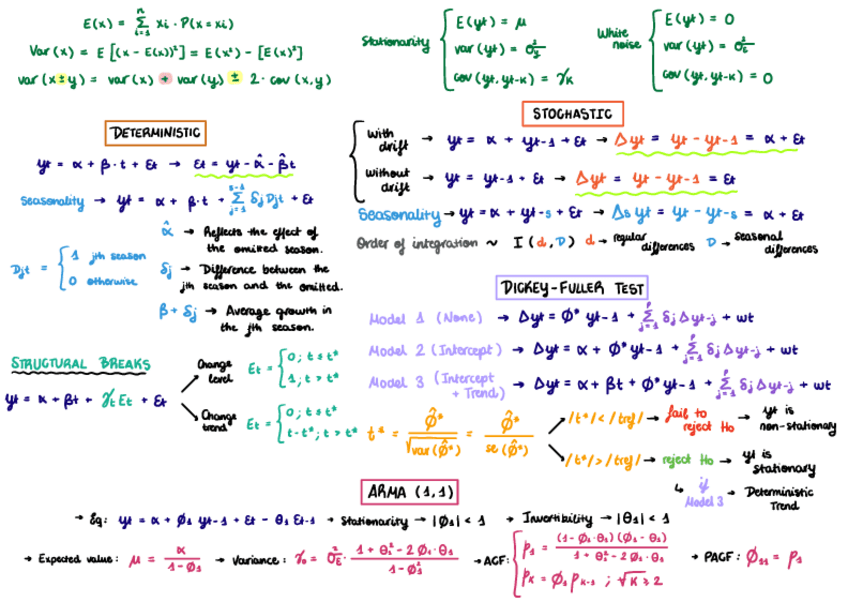 E(x) = Σ_{i=1}^{n} xi · P(x = xi)
Var(x) = E[(x - E(x))²] = E(x²) - [E(x)²]
var(x ± y) = var(x) + var(y) ± 2 · cov(x, y)
Stationarity { E(yt) = μ
var(yt) = σ²y
cov(yt, yt-k) = γk
White noise { E(yt) = 0
var(yt) = σ²ε
cov(yt, yt-k) = 0
DETERMINISTIC
yt = α + β · t + εt → εt = yt - α̂ - β̂t
Seasonality → yt = α + β · t + Σ_{j=1}^{s-1} δj Djt + εt
α̂ → Reflects the effect of
the omitted season.
Djt = { 1 jth season
0 otherwise
δj → Difference between the
jth season and the omitted.
β + δj → Average growth in
the jth season.
STOCHASTIC
With drift → yt = α + yt-1 + εt → Δyt = yt - yt-1 = α + εt
Without drift → yt = yt-1 + εt → Δyt = yt - yt-1 = εt
Seasonality → yt = α + yt-s + εt → Δs yt = yt - yt-s = α + εt
Order of integration ~ I(d, D) d → regular differences D → seasonal differences
DICKEY-FULLER TEST
Model 1 (None) → Δyt = Φ* yt-1 + Σ_{j=1}^{p} δj Δyt-j + wt
Model 2 (Intercept) → Δyt = α + Φ* yt-1 + Σ_{j=1}^{p} δj Δyt-j + wt
Model 3 (Intercept + Trend) → Δyt = α + βt + Φ* yt-1 + Σ_{j=1}^{p} δj Δyt-j + wt
STRUCTURAL BREAKS
yt = α + βt + γt Et + εt
Change level Et = { 0; t ≤ t*
1; t > t*
Change trend Et = { 0; t ≤ t*
t-t*; t > t*
t* = Φ̂* / √var(Φ̂*) = Φ̂* / se(Φ̂*)
/t*/ < /tref/ → fail to reject Ho → yt is non-stationary
/t*/ > /tref/ → reject Ho → yt is stationary
↳ if Model 3 → Deterministic Trend
ARMA (1,1)
→ Eq: yt = α + Φ1 yt-1 + εt - θ1 εt-1 → Stationarity → |Φ1| < 1 → Invertibility → |θ1| < 1
→ Expected value: μ = α / 1-Φ1 → Variance: γ0 = σ²ε · 1 + θ1² - 2Φ1 · θ1 / 1-Φ1² → ACF: { ρ1 = (1-Φ1·θ1)(Φ1-θ1) / 1 + θ1² - 2Φ1·θ1
ρk = Φ1 ρk-1 ; √k ≥ 2
→ PACF: Φ11 = ρ1